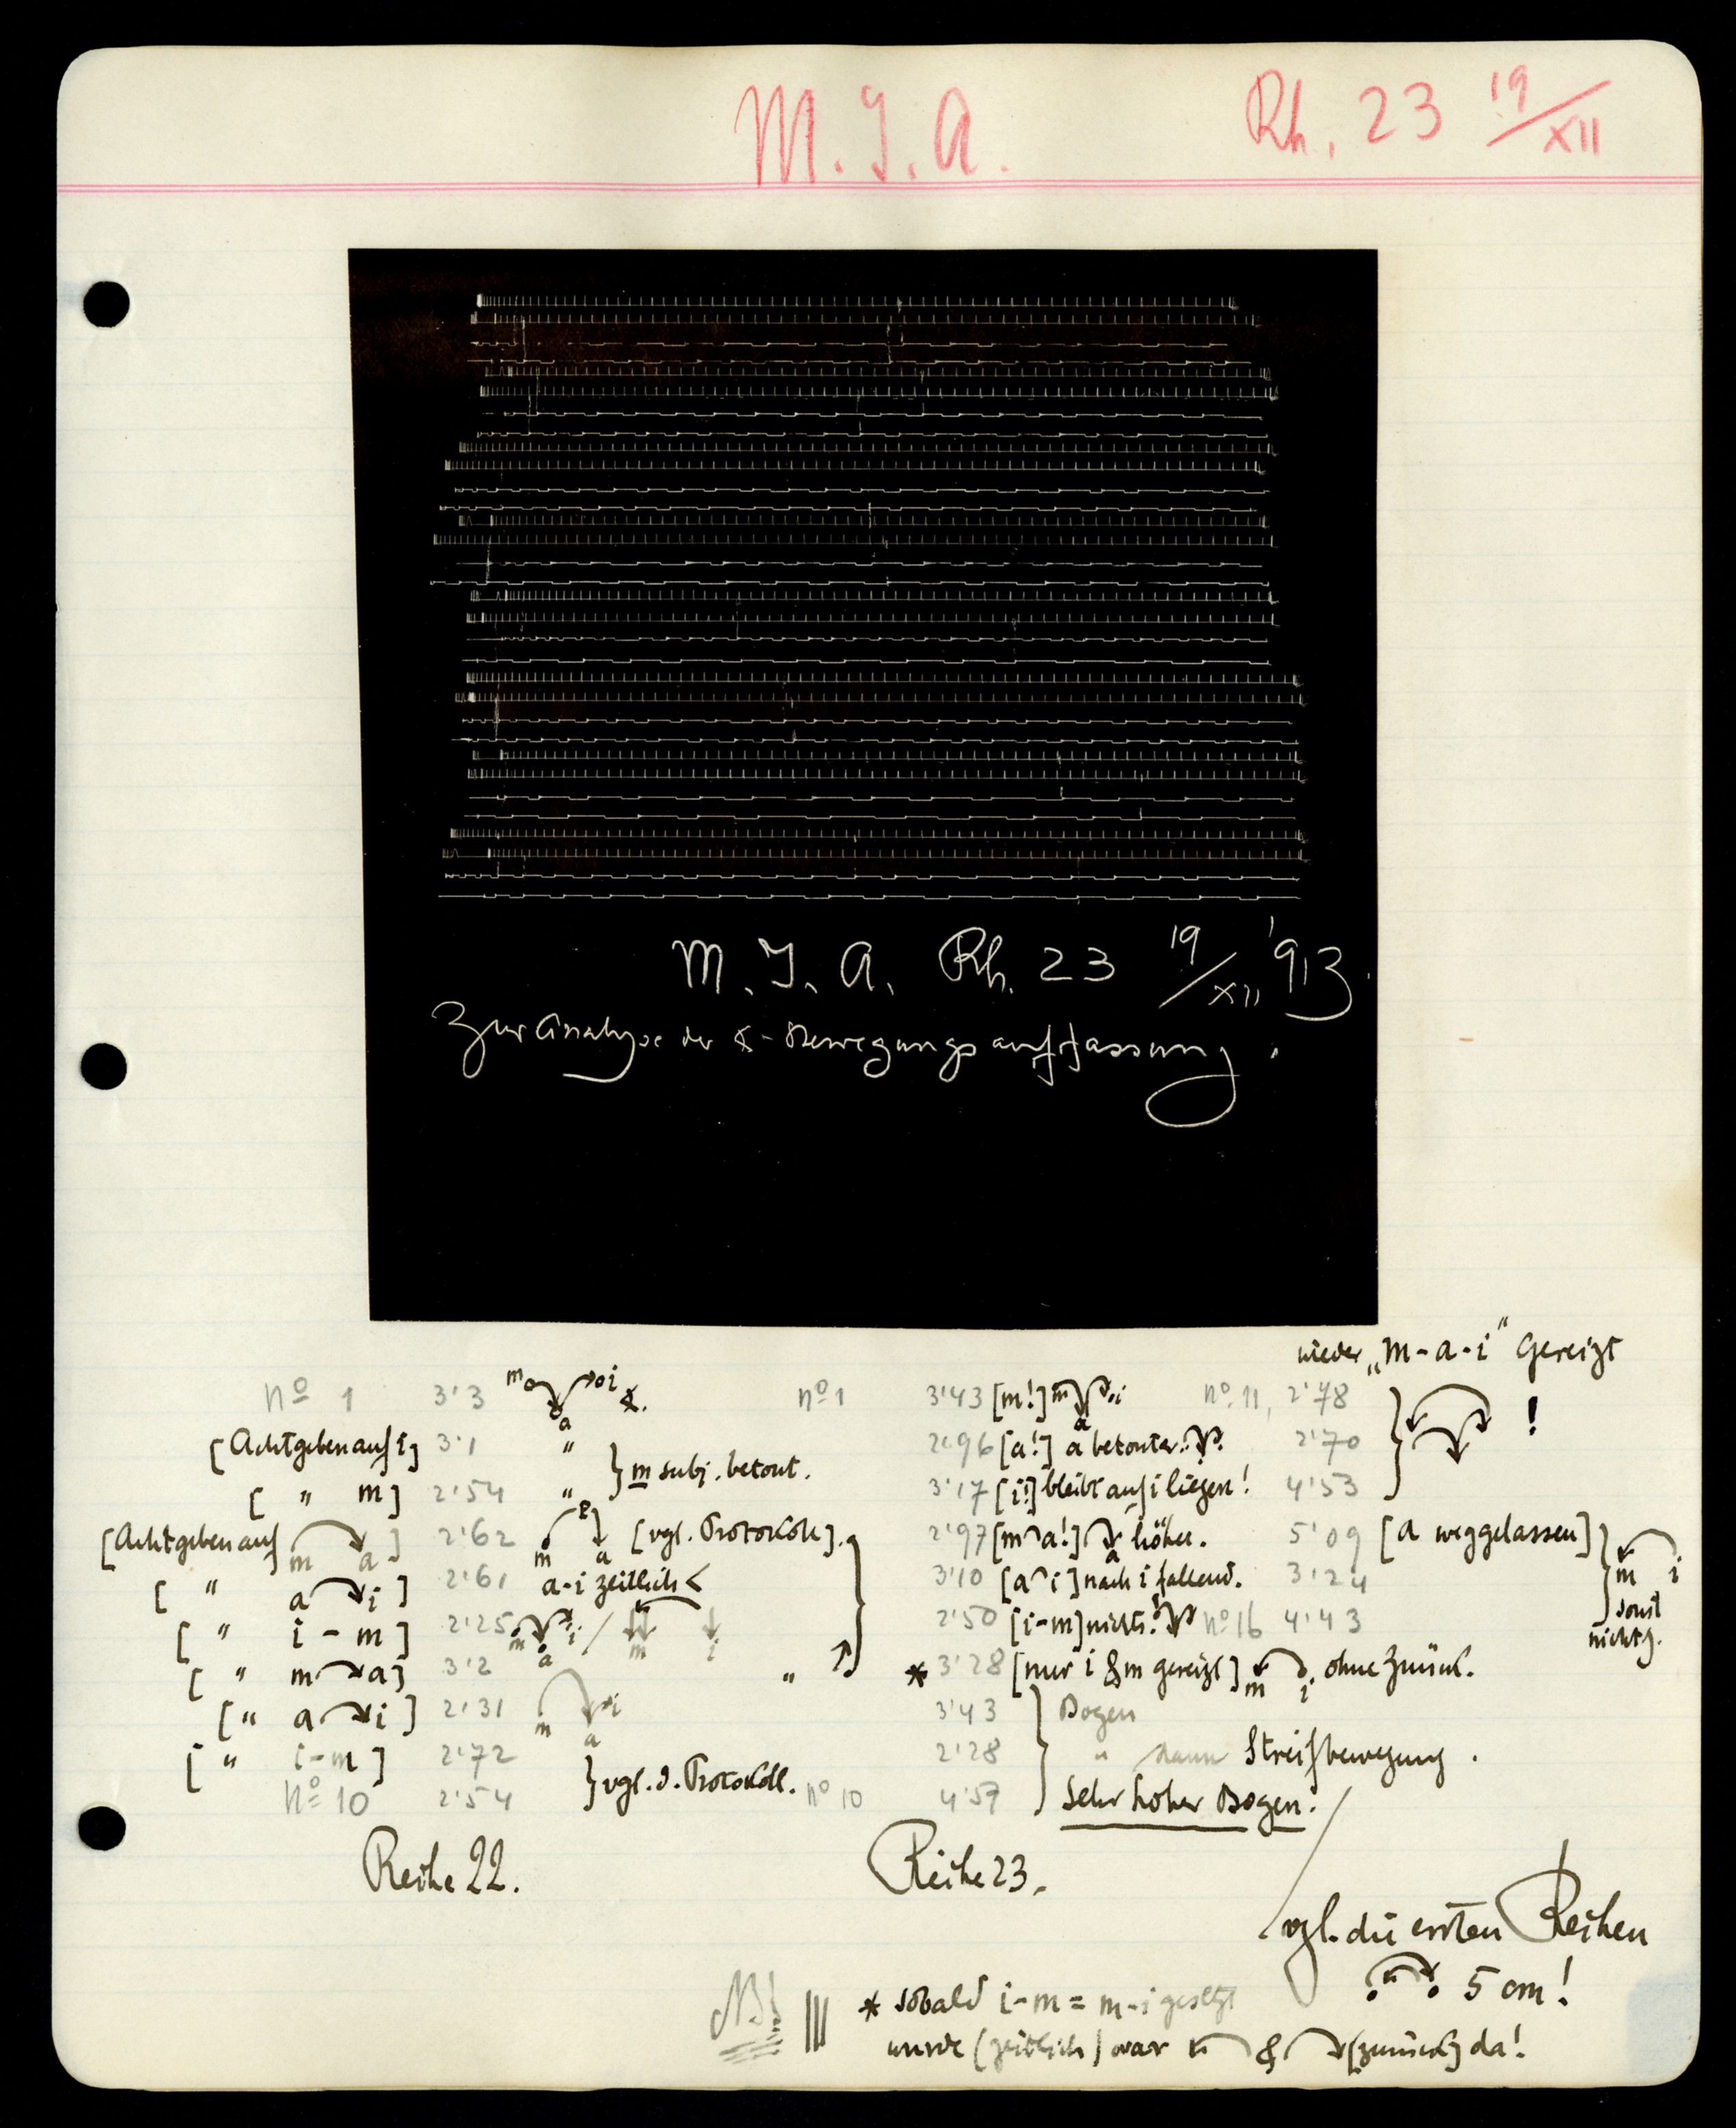 M. J. A. Rh. 23 19/XII
M. J. A. Rh. 23 19/XII '913.
Zur Analyse der - Bewegungsauffassung.
wieder „m-a-i" gereizt
Nº 1 3'3 m i a
[Achtgeben auf i] 3'1 "
[ " m] 2'54 " } m subj. betont.
[Achtgeben auf m a ] 2'62 m a [vgl. Protokoll].
[ " a i ] 2'61 a-i zeitlich <
[ " i - m ] 2'25 m a i / m i
[ " m a] 3'2 "
[ " a i ] 2'31 m a i
[ " i-m ] 2'72
Nº 10 2'54 } vgl. d. Protokoll.
Reihe 22.
nº 1 3'43 [m!] m a i
2'96 [a!] a betonter.
3'17 [i!] bleibt auf i liegen!
2'97 [m a!] a höher.
3'10 [a i] nach i fallend.
2'50 [i-m] nichts.
* 3'28 [nur i & m gereizt] m i ohne Zurück.
3'43 Bogen
2'28 " dann Streifbewegung.
nº 10 4'57 sehr hoher Bogen!
Reihe 23.
nº 11, 2'78
2'70 !
4'53
5'09 [a weggelassen]
3'24 m i
nº 16 4'43 sonst
nichts.
vgl. die ersten Reihen
5 cm!
NB! * sobald i-m = m-i gesetzt
wurde (zeitlich) war & [zurück] da!